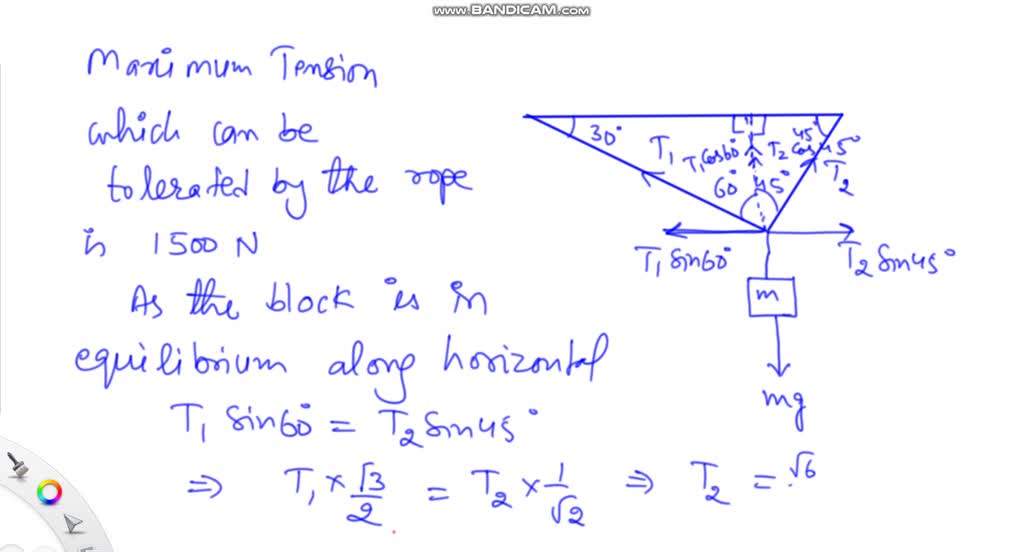 www.BANDICAM.com
Maximum Tension
which can be
tolerated by the rope
is 1500 N
As the block is in
equilibrium along horizontal
T₁ Sin60° = T₂ Sin45°
⇒ T₁ × √3/2 = T₂ × 1/√2 ⇒ T₂ = √6
30°
45°
T₁
T₁cos60°
T₂ cos45°
T₂
60°
45°
T₁ Sin60°
T₂ Sin45°
m
mg